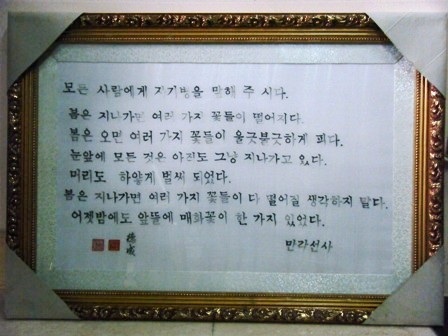 모든 사람에게 자기병을 말해 주 시다.
봄은 지나가면 여러 가지 꽃들이 떨어지다.
봄은 오면 여러 가지 꽃들이 울긋불긋하게 피다.
눈앞에 모든 것은 아직도 그냥 지나가고 있다.
머리도 하얗게 벌써 되었다.
봄은 지나가면 여러 가지 꽃들이 다 떨어질 생각하지 말다.
어젯밤에도 앞뜰에 매화꽃이 한 가지 있었다.
만각선사